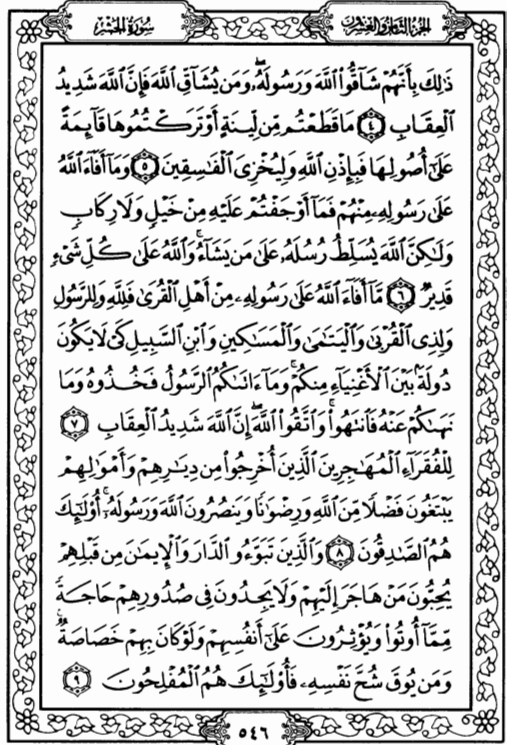 سورة الحشر
الجزء الثامن والعشرون
ذَٰلِكَ بِأَنَّهُمْ شَآقُّوا۟ ٱللَّهَ وَرَسُولَهُۥ ۖ وَمَن يُشَآقِّ ٱللَّهَ فَإِنَّ ٱللَّهَ شَدِيدُ
ٱلْعِقَابِ ٤ مَا قَطَعْتُم مِّن لِّينَةٍ أَوْ تَرَكْتُمُوهَا قَآئِمَةً
عَلَىٰٓ أُصُولِهَا فَبِإِذْنِ ٱللَّهِ وَلِيُخْزِىَ ٱلْفَٰسِقِينَ ٥ وَمَآ أَفَآءَ ٱللَّهُ
عَلَىٰ رَسُولِهِۦ مِنْهُمْ فَمَآ أَوْجَفْتُمْ عَلَيْهِ مِنْ خَيْلٍ وَلَا رِكَابٍ
وَلَٰكِنَّ ٱللَّهَ يُسَلِّطُ رُسُلَهُۥ عَلَىٰ مَن يَشَآءُ ۚ وَٱللَّهُ عَلَىٰ كُلِّ شَىْءٍ
قَدِيرٌ ٦ مَّآ أَفَآءَ ٱللَّهُ عَلَىٰ رَسُولِهِۦ مِنْ أَهْلِ ٱلْقُرَىٰ فَلِلَّهِ وَلِلرَّسُولِ
وَلِذِى ٱلْقُرْبَىٰ وَٱلْيَتَٰمَىٰ وَٱلْمَسَٰكِينِ وَٱبْنِ ٱلسَّبِيلِ كَىْ لَا يَكُونَ
دُولَةًۢ بَيْنَ ٱلْأَغْنِيَآءِ مِنكُمْ ۚ وَمَآ ءَاتَىٰكُمُ ٱلرَّسُولُ فَخُذُوهُ وَمَا
نَهَىٰكُمْ عَنْهُ فَٱنتَهُوا۟ ۚ وَٱتَّقُوا۟ ٱللَّهَ ۖ إِنَّ ٱللَّهَ شَدِيدُ ٱلْعِقَابِ ٧
لِلْفُقَرَآءِ ٱلْمُهَٰجِرِينَ ٱلَّذِينَ أُخْرِجُوا۟ مِن دِيَٰرِهِمْ وَأَمْوَٰلِهِمْ
يَبْتَغُونَ فَضْلًا مِّنَ ٱللَّهِ وَرِضْوَٰنًا وَيَنصُرُونَ ٱللَّهَ وَرَسُولَهُۥٓ ۚ أُو۟لَٰٓئِكَ
هُمُ ٱلصَّٰدِقُونَ ٨ وَٱلَّذِينَ تَبَوَّءُو ٱلدَّارَ وَٱلْإِيمَٰنَ مِن قَبْلِهِمْ
يُحِبُّونَ مَنْ هَاجَرَ إِلَيْهِمْ وَلَا يَجِدُونَ فِى صُدُورِهِمْ حَاجَةً
مِّمَّآ أُوتُوا۟ وَيُؤْثِرُونَ عَلَىٰٓ أَنفُسِهِمْ وَلَوْ كَانَ بِهِمْ خَصَاصَةٌ ۚ
وَمَن يُوقَ شُحَّ نَفْسِهِۦ فَأُو۟لَٰٓئِكَ هُمُ ٱلْمُفْلِحُونَ ٩
٥٤٦